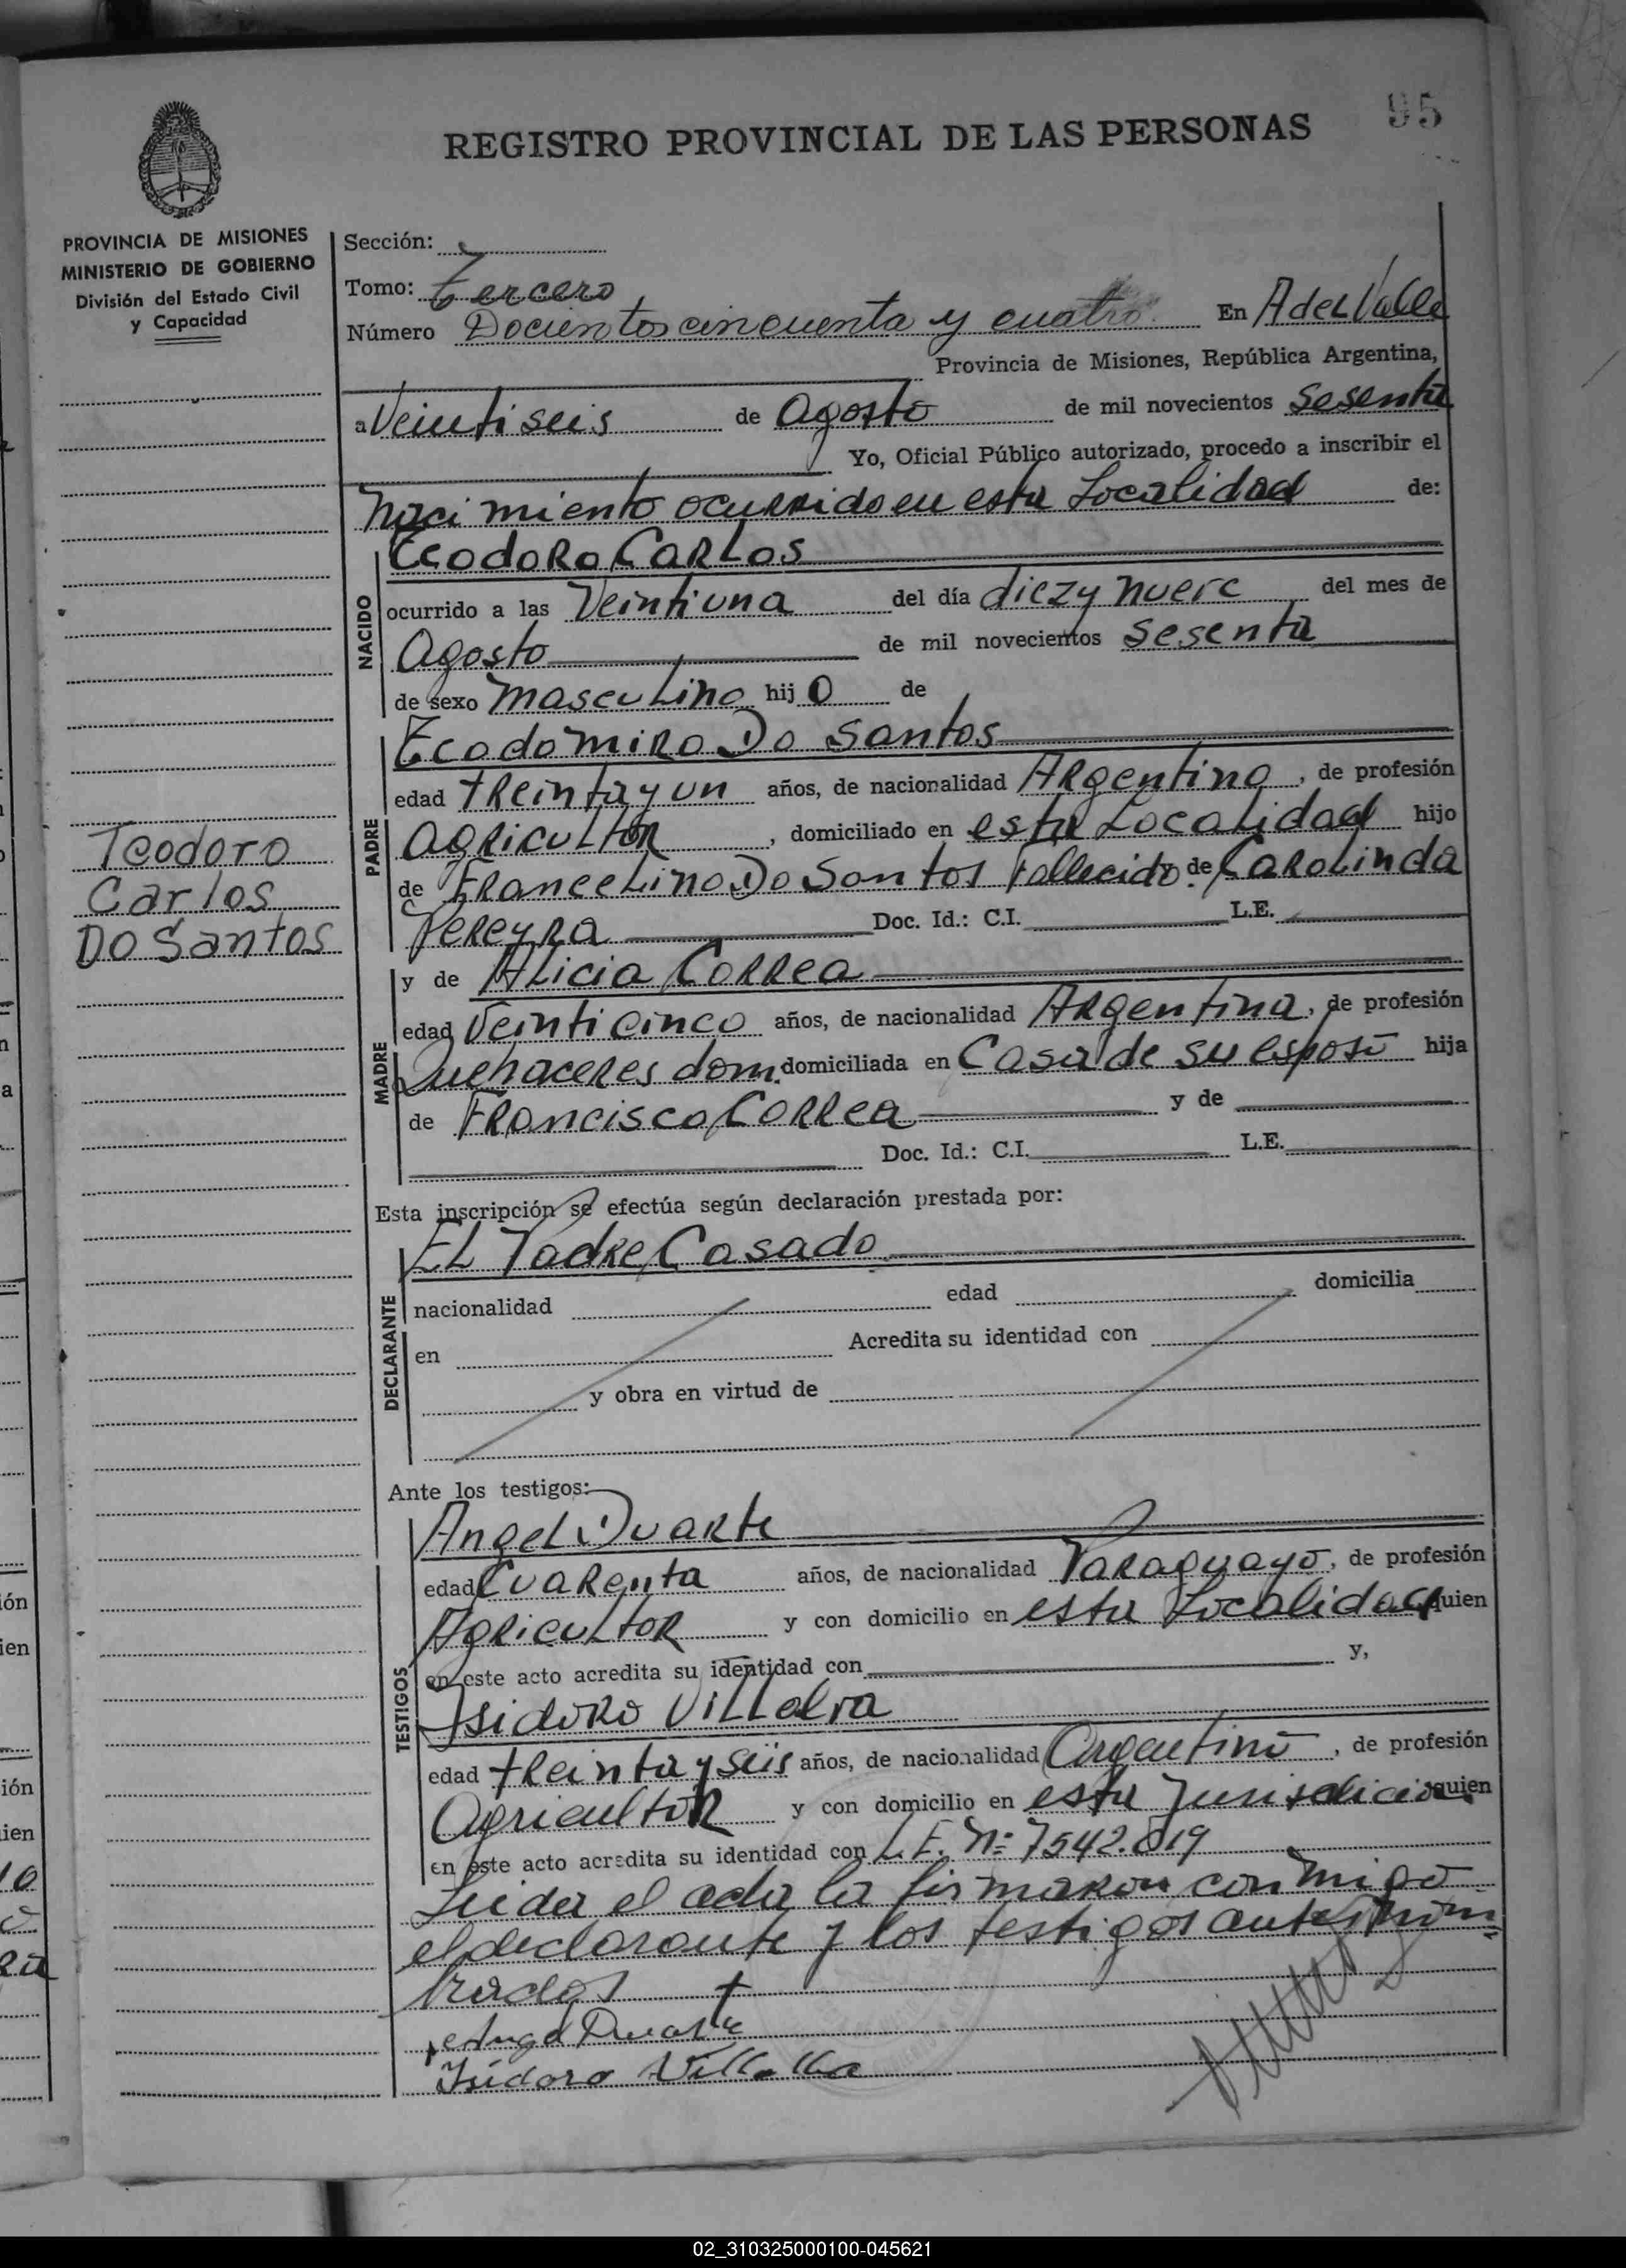 95
REGISTRO PROVINCIAL DE LAS PERSONAS
PROVINCIA DE MISIONES
MINISTERIO DE GOBIERNO
División del Estado Civil
y Capacidad
Teodoro
Carlos
Do Santos
Sección:
Tomo: Tercero
Número Docientos cincuenta y cuatro En A del Valle
Provincia de Misiones, República Argentina,
a Veinti seis de Agosto de mil novecientos sesenta
Yo, Oficial Público autorizado, procedo a inscribir el
Nacimiento ocurrido en esta Localidad de:
NACIDO
Teodoro Carlos
ocurrido a las Veintiuna del día diez y nueve del mes de
Agosto de mil novecientos sesenta
de sexo masculino hij o de
PADRE
Teodomiro Do Santos
edad treinta y un años, de nacionalidad Argentino, de profesión
Agricultor, domiciliado en esta Localidad hijo
de Francelino Do Santos fallecido de Carolinda
Pereyra Doc. Id.: C.I. L.E.
MADRE
y de Alicia Correa
edad Veinticinco años, de nacionalidad Argentina, de profesión
Quehaceres dom. domiciliada en Casa de su esposo hija
de Francisco Correa y de
Doc. Id.: C.I. L.E.
Esta inscripción se efectúa según declaración prestada por:
DECLARANTE
El Padre Casado
nacionalidad edad domicilia
en Acredita su identidad con
y obra en virtud de
Ante los testigos:
TESTIGOS
Angel Duarte
edad Cuarenta años, de nacionalidad Paraguayo, de profesión
Agricultor y con domicilio en esta Localidad quien
en este acto acredita su identidad con y,
Isidoro Villalva
edad treinta y seis años, de nacionalidad Argentino, de profesión
Agricultor y con domicilio en esta Jurisdicion quien
en este acto acredita su identidad con L.E. Nº 7542.819
Leida el acta la firmaron conmigo
el declarante y los testigos antes nom=
brados
Angel Duarte
Isidoro Villalba
02_310325000100-045621